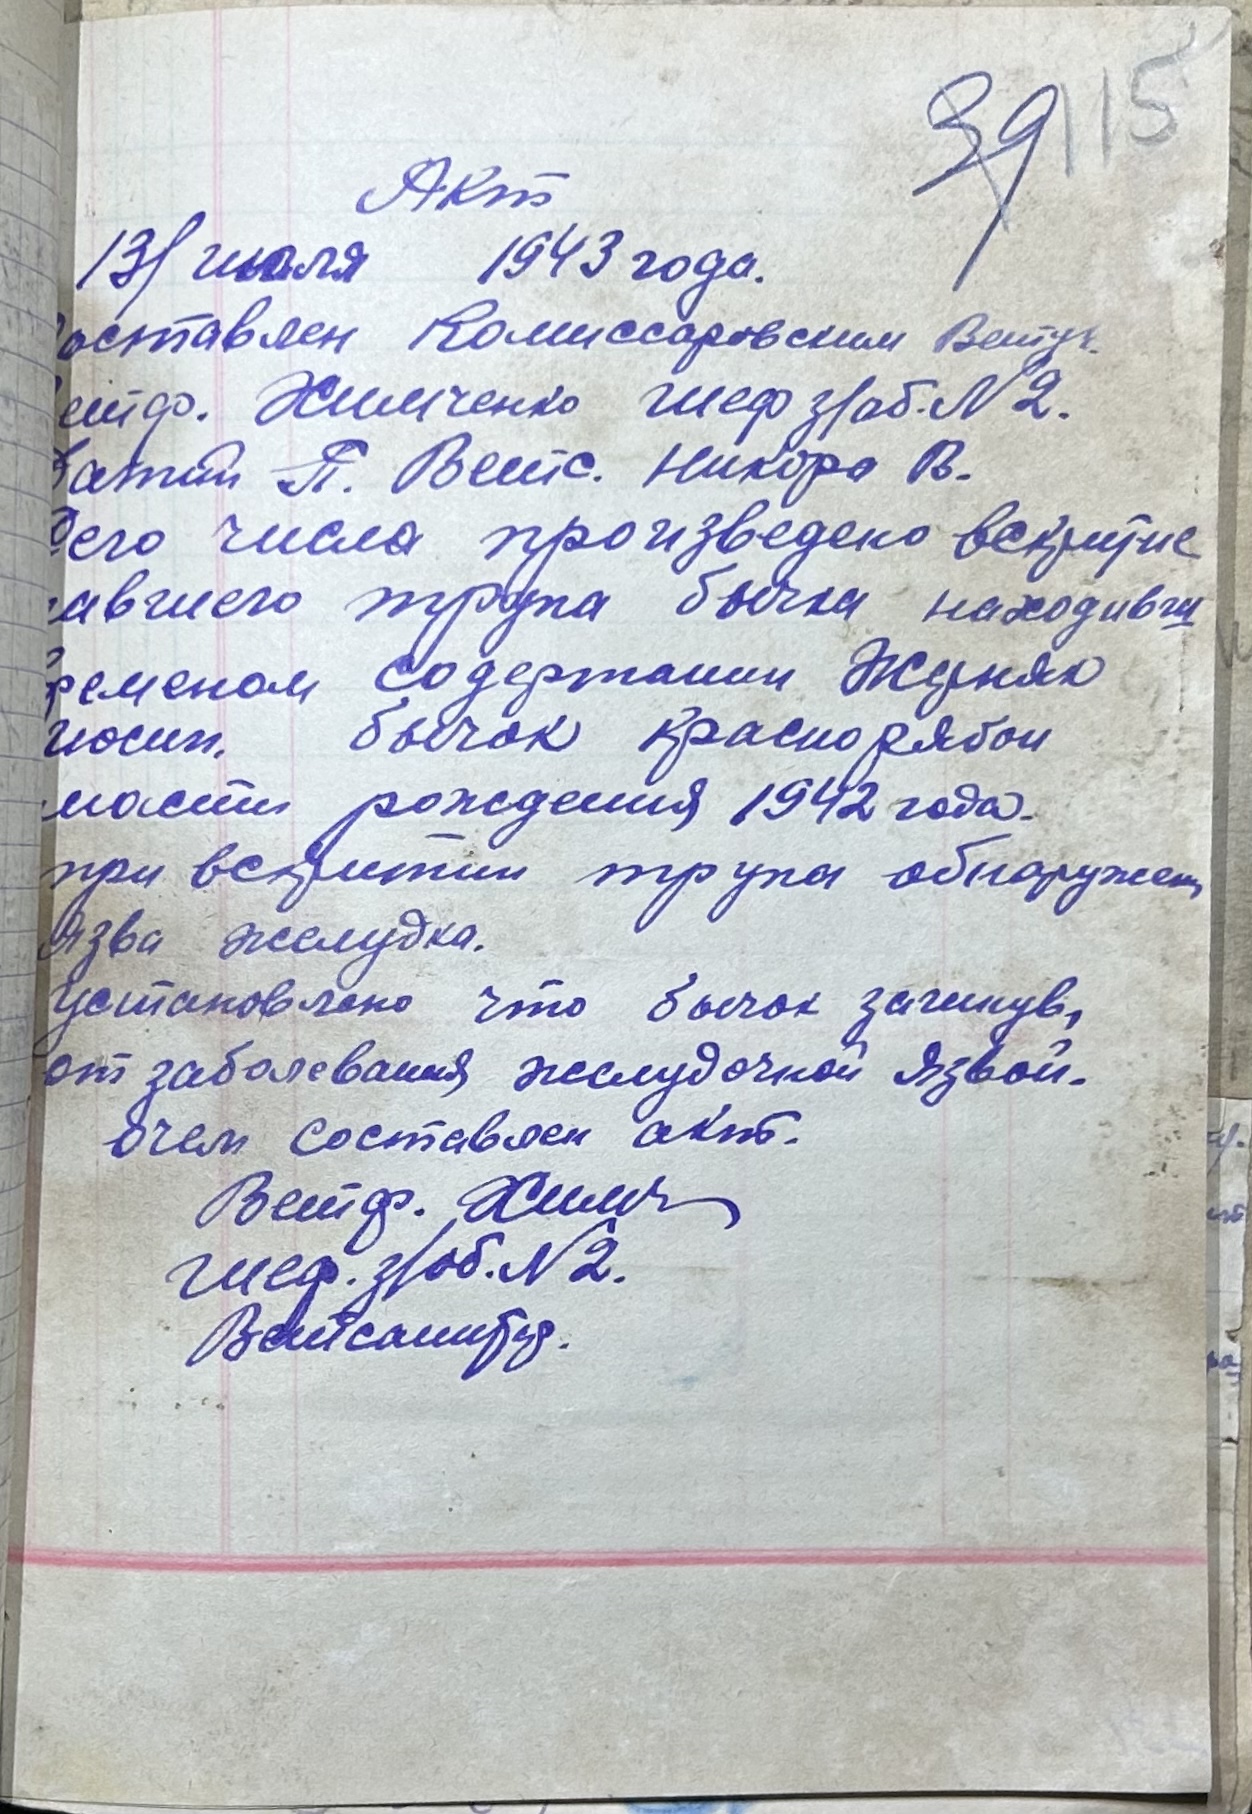 39 115
Акт
13/ июля 1943 года.
оставлен Комиссаровским Ветуч.
етф. Химченко шеф з/об. N2.
П. Ветс. Никора В.
его числа произведено вскрытие
авшего трупа бычка находивши
ременом содержании Жерняк
бычок краснорябой
масти рождения 1942 года.
при вскрытии трупа обнаружен
язва желудка.
Установлено что бычок загинув,
от заболевания желудочной язвой.
очем составлен акт.
Ветф. Химч
шеф. з/об. N2.
Ветсанитар.